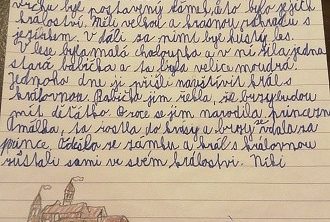 vrchu byl postavený zámek, a to bylo jejich
království. Měli velkou a krásnou zahradu s
jezírkem. V dáli za nimi byl hustý les.
V lese byla malá chaloupka a v ní žila jedna
stará babička a ta byla velice moudrá.
Jednoho dne ji přišli navštívit král s
královnou. Babička jim řekla, že brzy budou
mít děťátko. O roce se jim narodila princezna
Amálka, ta rostla do krásy a brzy se vdala za
prince. Odešla ze zámku a král s královnou
zůstali sami ve svém království. Niki